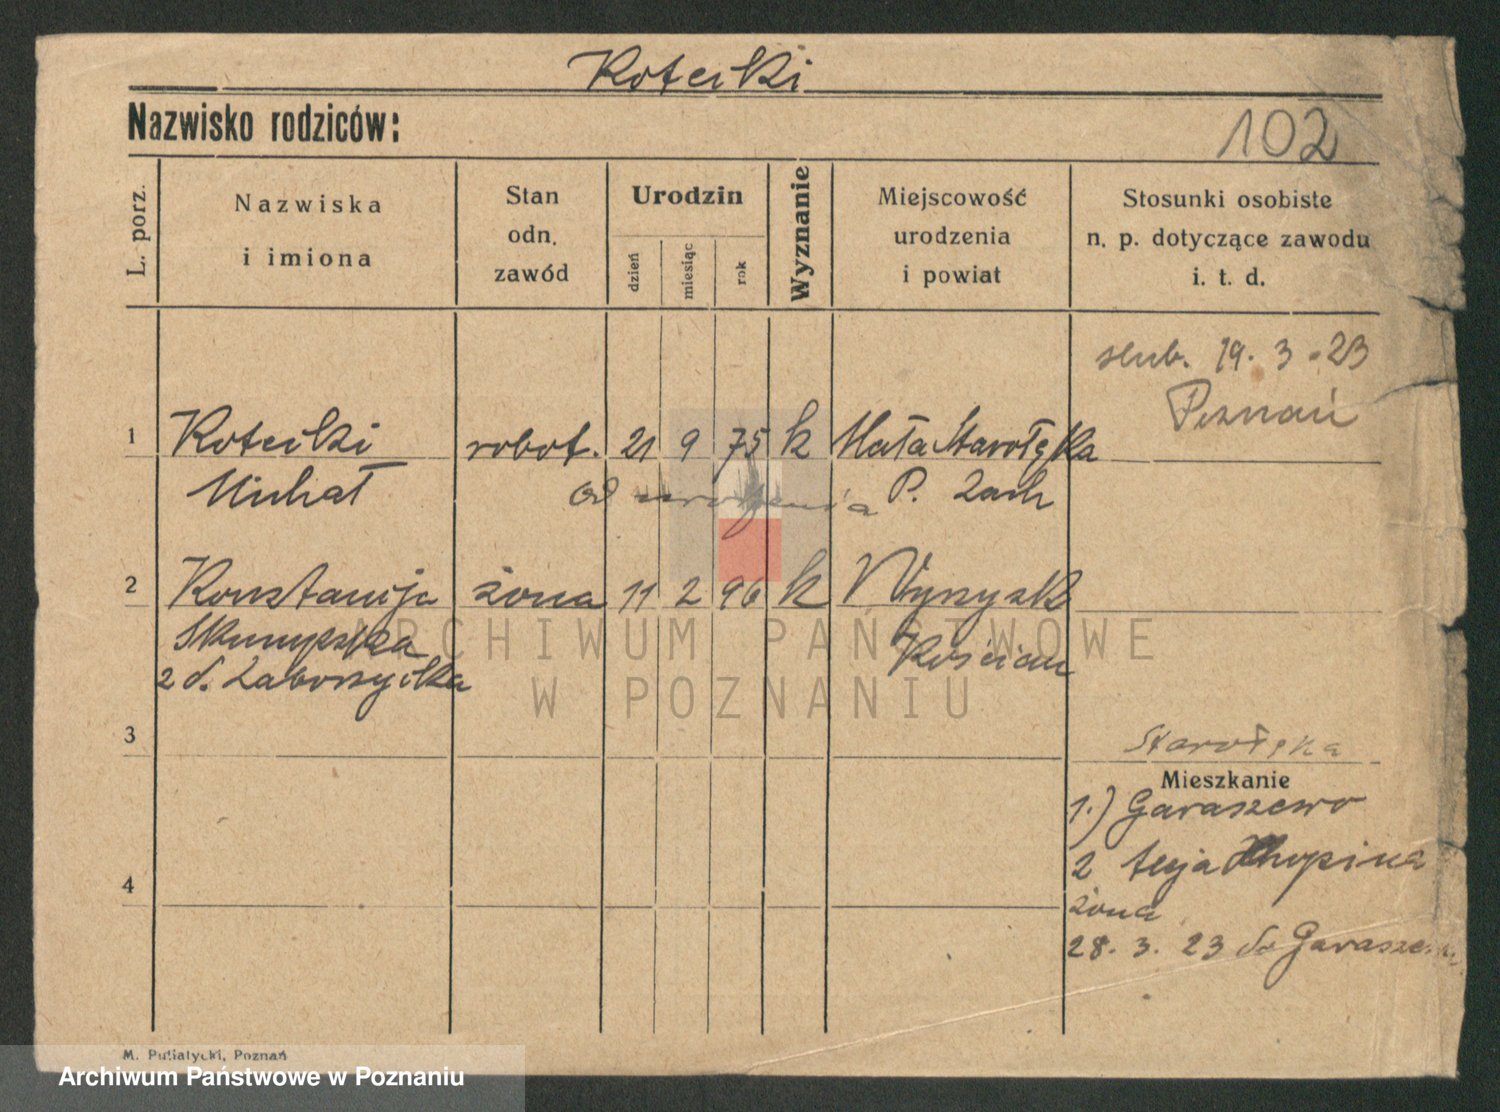 Kotecki
Nazwisko rodziców:
102
L. porz.
Nazwiska
i imiona
Stan
odn.
zawód
Urodzin
dzień
miesiąc
rok
Wyznanie
Miejscowość
urodzenia
i powiat
Stosunki osobiste
n. p. dotyczące zawodu
i. t. d.
slub. 19. 3. 23
Poznań
1 Kotecki robot. 21 9 75 k Mała Starołęka
Michał od urodzenia P. Zach
2 Konstancja żona 11 2 96 k
Kościan
2 d.
ARCHIWUM PAŃSTWOWE
W POZNANIU
3
Starołęka
Mieszkanie
1.) Garaszewo
2
żona
4
28. 3. 23 do Garaszewo
M. Putiatycki, Poznań
Archiwum Państwowe w Poznaniu